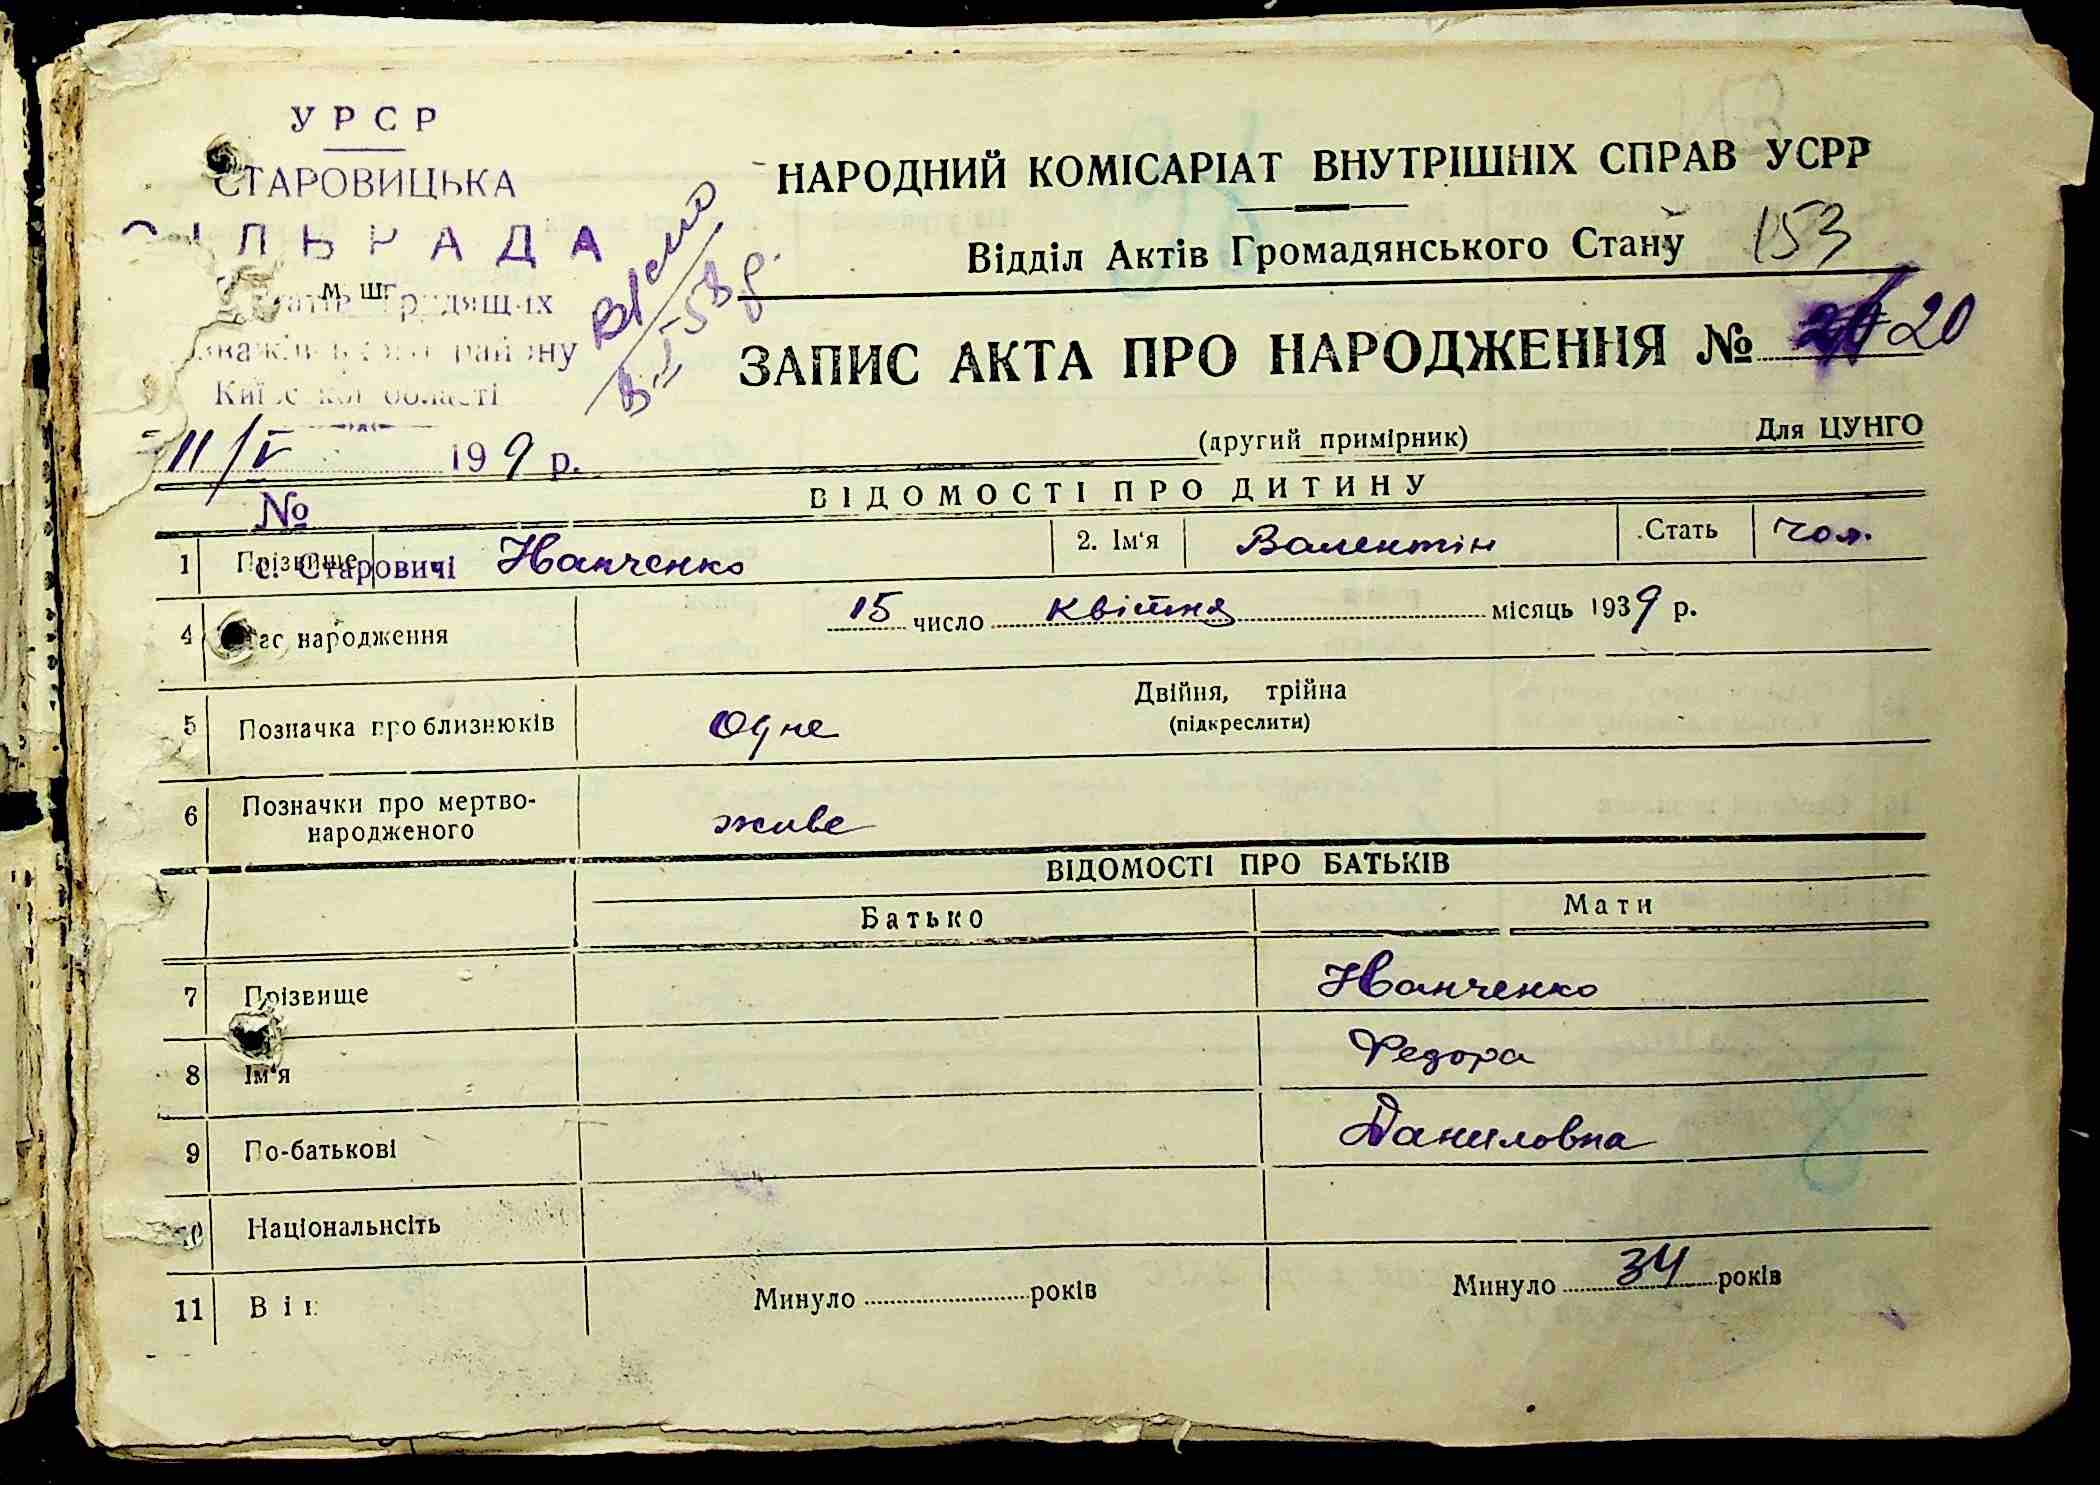 УРСР
СТАРОВИЦЬКА
СІЛЬРАДА
м. шт.
Київської області
11/V 199 р.
№
с. Старовичі
НАРОДНИЙ КОМІСАРІАТ ВНУТРІШНІХ СПРАВ УСРР
Відділ Актів Громадянського Стану 153
ЗАПИС АКТА ПРО НАРОДЖЕННЯ № 20
(другий примірник) Для ЦУНГО
ВІДОМОСТІ ПРО ДИТИНУ
1 Прізвище Иванченко 2. Ім'я Валентін Стать чол.
4 Час народження 15 число квітня місяць 1939 р.
5 Позначка про близнюків Одне Двійня, трійна
(підкреслити)
6 Позначки про мертво-
народженого живе
ВІДОМОСТІ ПРО БАТЬКІВ
Батько Мати
7 Прізвище Иванченко
8 Ім'я Федора
9 По-батькові Даниловна
10 Національнсіть
11 Вік Минуло років Минуло 34 років